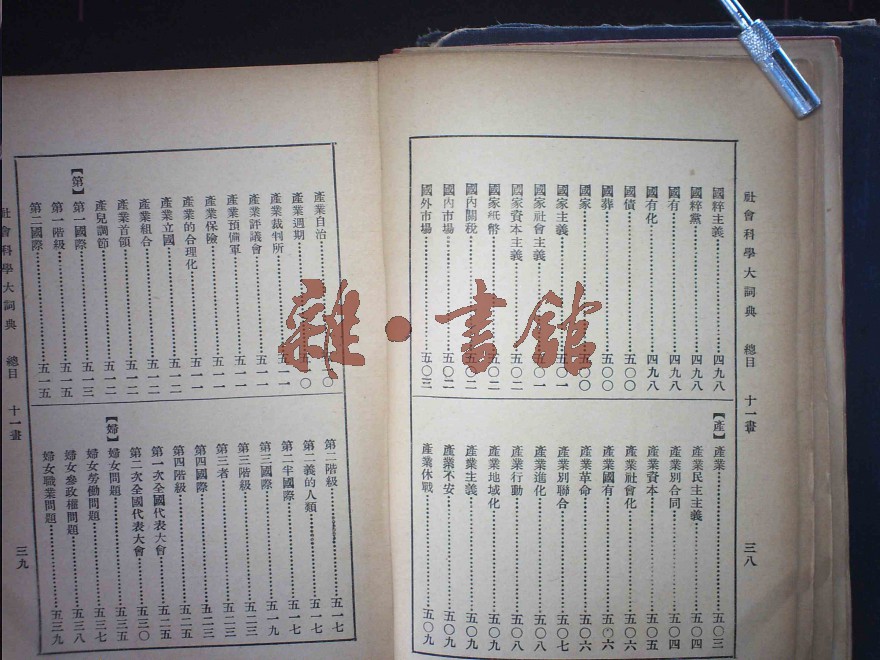 社會科學大詞典 總目 十一畫 三八
國粹主義……四九八
國粹黨……四九八
國有……四九八
國有化……四九八
國債……五〇〇
國葬……五〇〇
國家……五〇〇
國家主義……五〇一
國家社會主義……五〇一
國家資本主義……五〇二
國家紙幣……五〇二
國內關稅……五〇二
國內市場……五〇二
國外市場……五〇三
【產】產業……五〇三
產業民主主義……五〇四
產業別合同……五〇四
產業資本……五〇五
產業社會化……五〇六
產業國有……五〇六
產業革命……五〇六
產業別聯合……五〇七
產業進化……五〇八
產業行動……五〇八
產業地域化……五〇九
產業主義……五〇九
產業不安……五〇九
產業休戰……五〇九
產業自治……〇
產業週期……〇
產業裁判所……五一一
產業評議會……五一一
產業預備軍……五一一
產業保險……五一一
產業的合理化……五一一
產業立國……五一二
產業組合……五一二
產業首領……五一二
產兒調節……五一二
【第】第一國際……五一三
第一階級……五一五
第二國際……五一五
第二階級……五一七
第二義的人類……五一七
第二半國際……五一七
第三國際……五一九
第三階級……五二三
第三者……五二三
第四國際……五二三
第四階級……五二五
第一次全國代表大會……五二五
第二次全國代表大會……五三〇
【婦】婦女問題……五三五
婦女勞働問題……五三七
婦女參政權問題……五三八
婦女職業問題……五三九
社會科學大詞典 總目 十一畫 三九
雜·書館